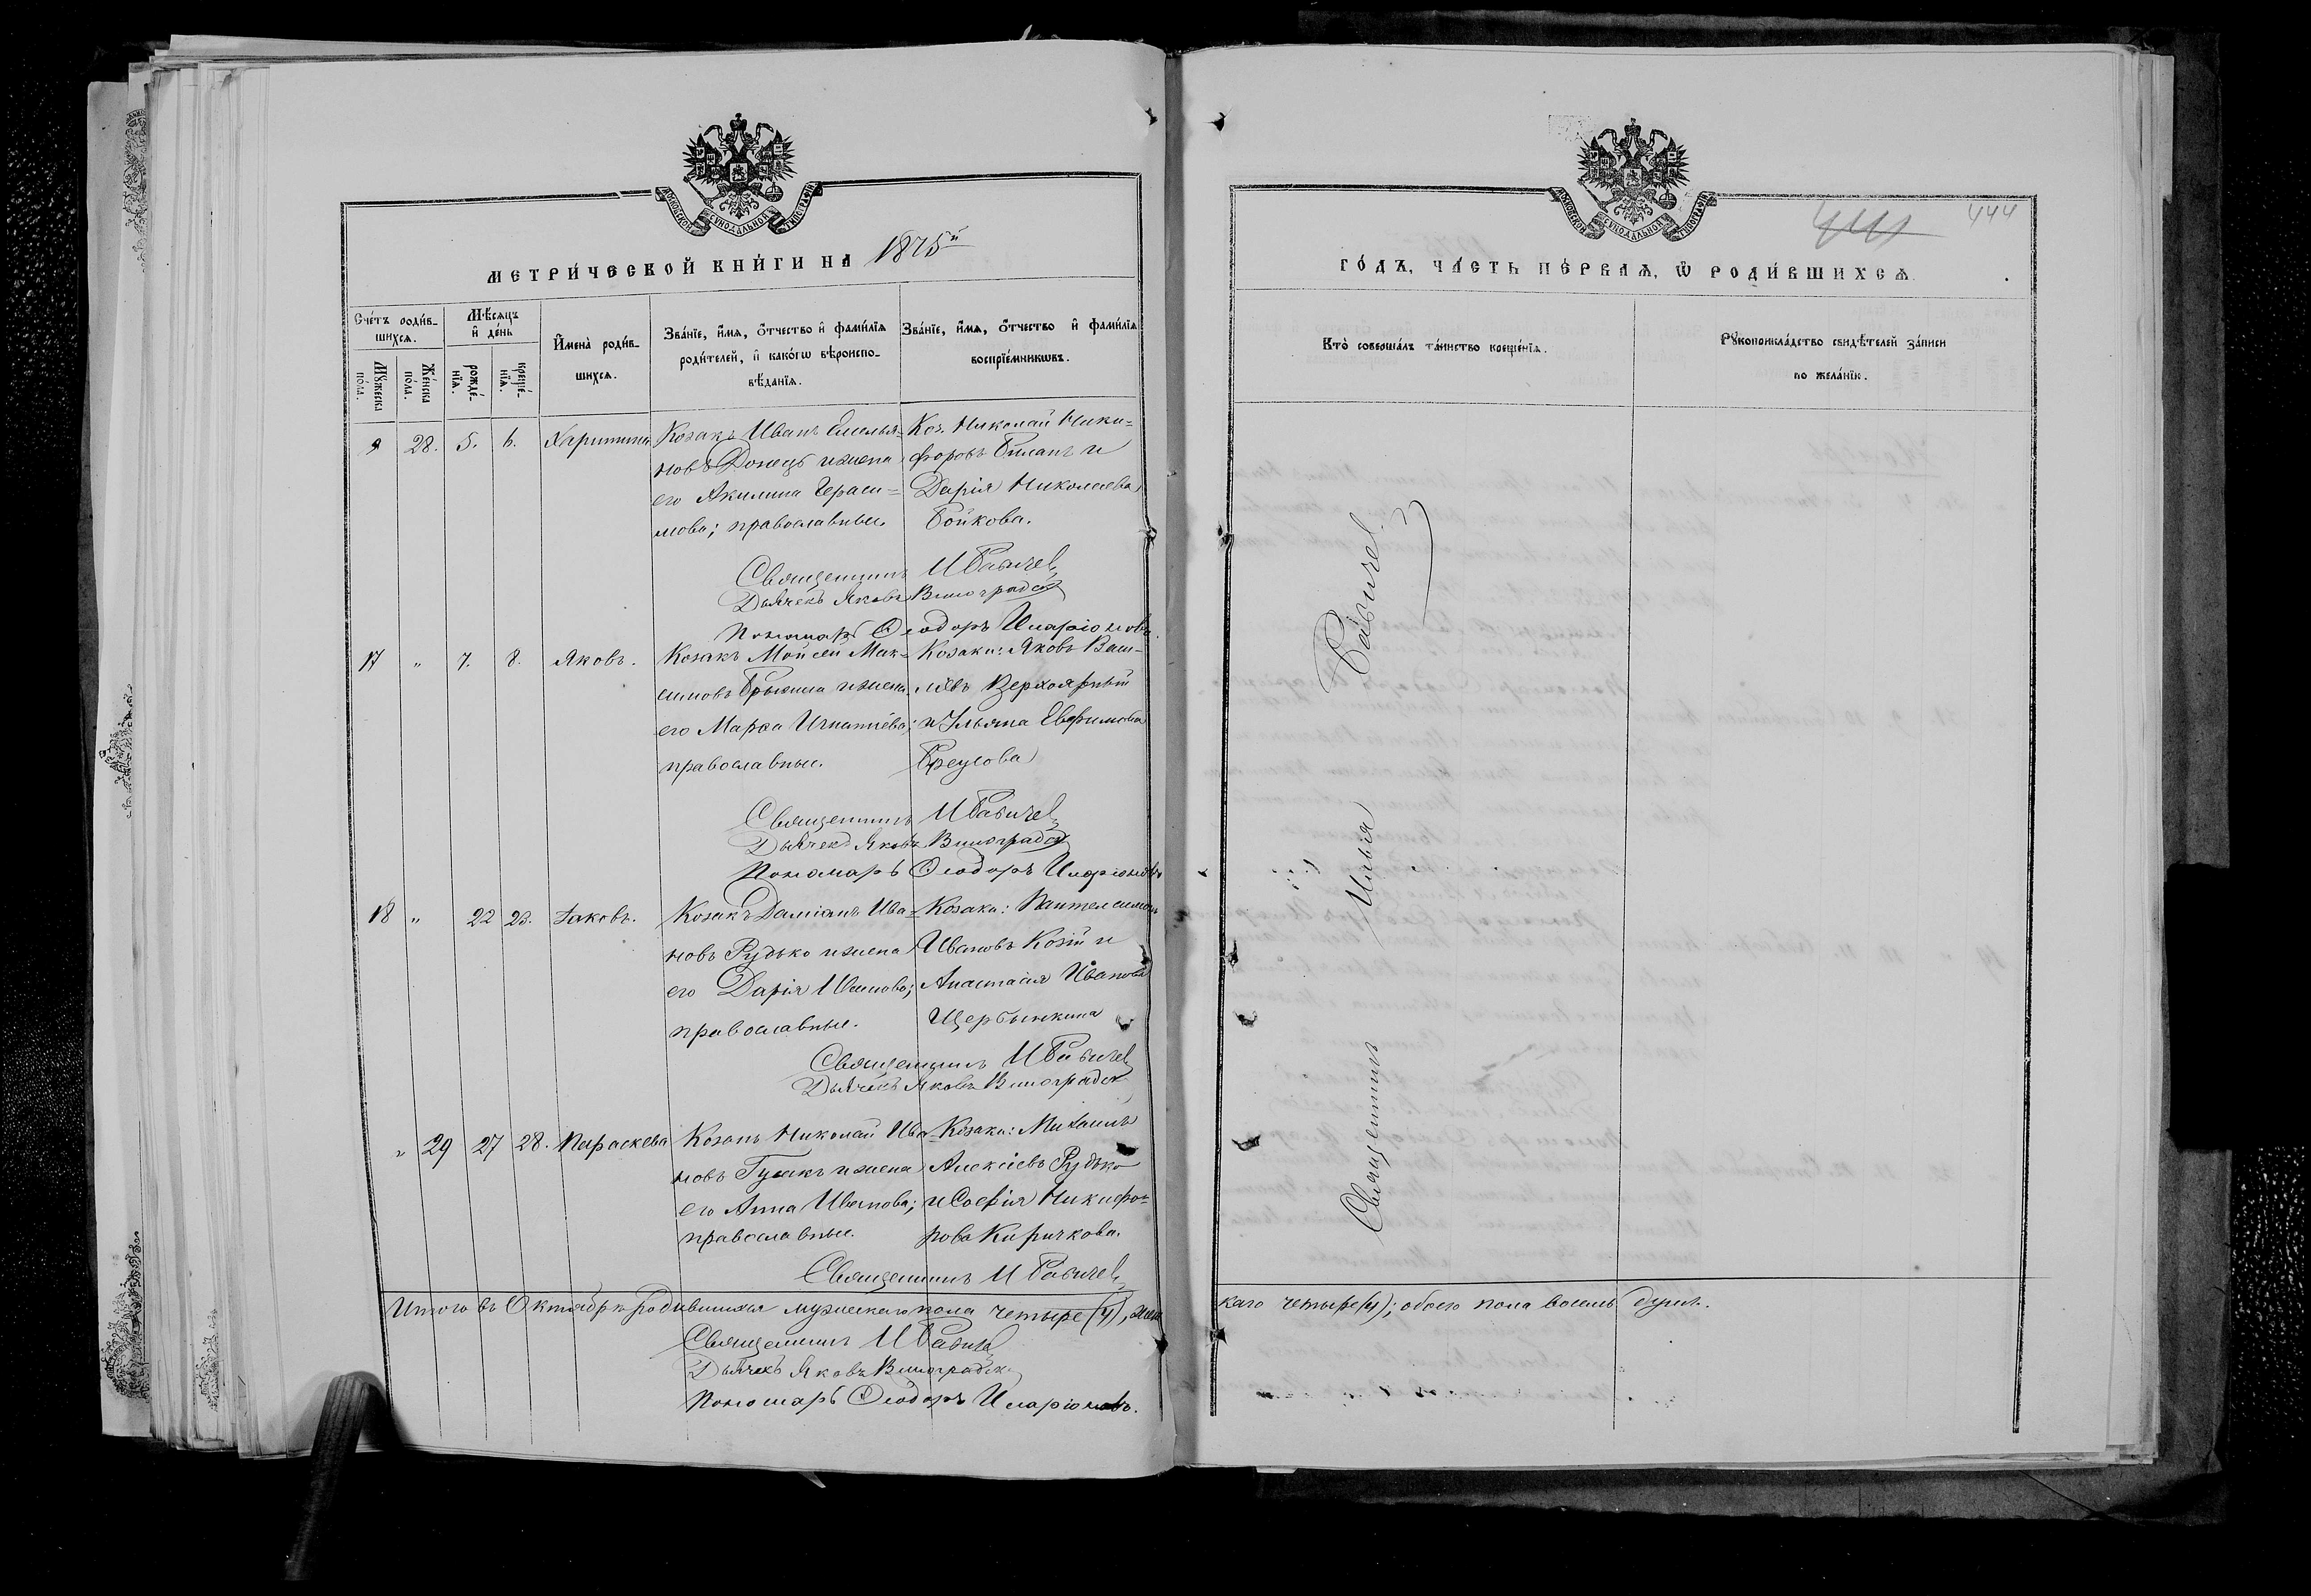 МОСКОВСКОЙ СѴНОДАЛЬНОЙ ТИПОГРАФІИ
МЕТРИ́ЧЕСКОЙ КНИ́ГИ НА 1875й
Сче́тъ роди́в-
шихсѧ.
Мꙋ́жеска по́ла.
Же́нска по́ла.
Мѣ́сѧцъ
и҆ де́нь
рожде́-
нїѧ.
креще́-
нїѧ.
И҆мена̀ роди́в-
шихсѧ.
Зва́нїе, и҆́мѧ, ѻ҆́тчество и҆ фами́лїѧ
роди́телей, и҆ како́гѡ вѣроиспо-
вѣ́данїѧ.
Зва́нїе, и҆́мѧ, ѻ҆́тчество и҆ фами́лїѧ
воспрїе́мникѡвъ.
28. 5. 6. Харитина Козакъ Иванъ Емелья=
новъ Донецъ и жена
его Акилина Гераси=
мова; православные.
Коз. Николай Ники=
форовъ Биланъ и
Дарія Николаева
Бойкова.
Священникъ И Бабичев
Дьячекъ Яковъ Виноградск
Пономарь Ѳеодоръ Иларіоновъ.
17 " 7. 8. Яковъ. Козакъ Мойсей Мак=
симовъ и жена
его Марѳа Игнатіева;
православные.
Козаки: Яковъ Васи-
лівъ Верхоярный
и Ульяна Евфимова
Бреусова
Священникъ И Бабичев
Дьячекъ Яковъ Виноградск
Пономарь Ѳеодоръ Иларіоновъ
18 " 22 23. Іаковъ. Козакъ Даміанъ Ива=
новъ Рудько и жена
его Дарія Иванова;
православные.
Козаки: Пантелеимонъ
Ивановъ Козій и
Анастасія Иванова
Щербинкина
Священникъ И Бабичев
Дьячекъ Яковъ Виноградск
" 29 27 28. Параскева Козакъ Николай Ива
новъ Гужикъ и жена
его Анна Иванова;
православные.
Козаки: Михаилъ
Алексіевъ Рудько
и Софія Никифо=
рова Киричкова.
Священникъ И Бабичев
Итого въ Октябрѣ родившихся мужескаго пола четыре (4), жен
Священникъ И Бабичев
Дьячекъ Яковъ Виноградск
Пономарь Ѳеодоръ Иларіоновъ.
МОСКОВСКОЙ СѴНОДАЛЬНОЙ ТИПОГРАФІИ
444
ГО́ДЪ, ЧА́СТЬ ПЕ́РВАѦ, Ѽ РОДИ́ВШИХСѦ.
Кто̀ соверша́лъ та́инство креще́нїѧ.
Рꙋкоприкла́дство свидѣ́телей за́писи
по жела́нїю.
Священникъ Илья Бабичев
скаго четыре (4); обоего пола восемь душъ.